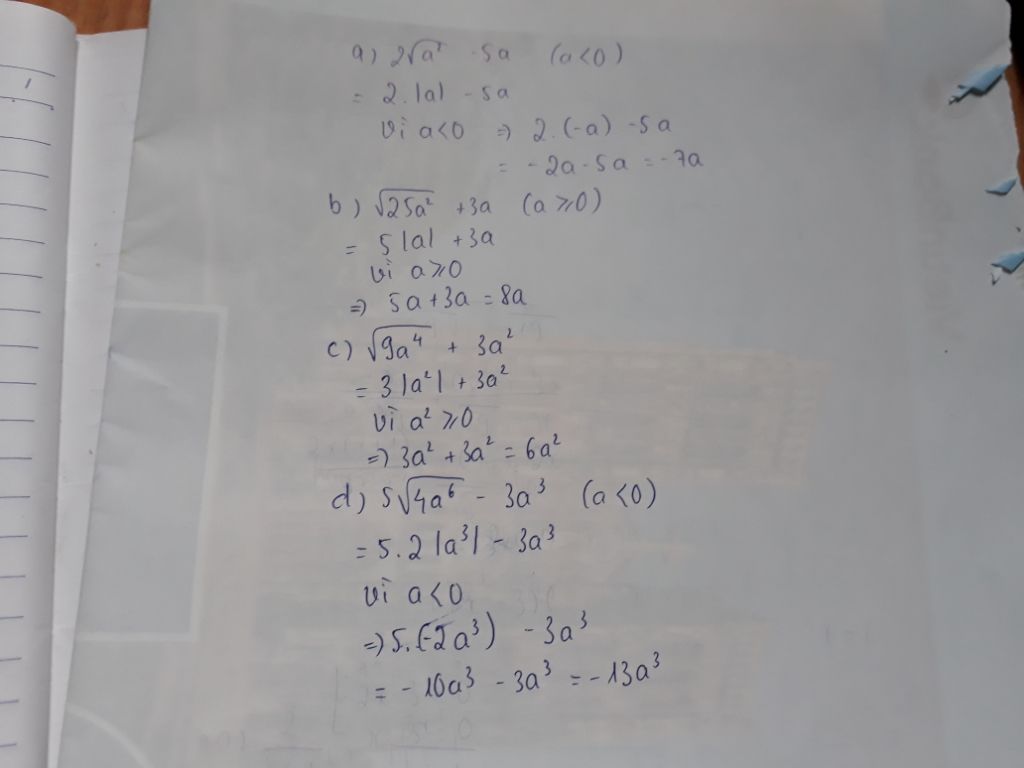 a) 2√a² - 5a (a<0)
= 2.|a| - 5a
Vì a<0 ⇒ 2.(-a) - 5a
= -2a - 5a = -7a
b) √25a² + 3a (a⩾0)
= 5|a| + 3a
Vì a⩾0
⇒ 5a + 3a = 8a
c) √9a⁴ + 3a²
= 3|a²| + 3a²
Vì a² ⩾0
⇒ 3a² + 3a² = 6a²
d) 5√4a⁶ - 3a³ (a<0)
= 5.2|a³| - 3a³
Vì a<0
⇒ 5.(-2a³) - 3a³
= -10a³ - 3a³ = -13a³